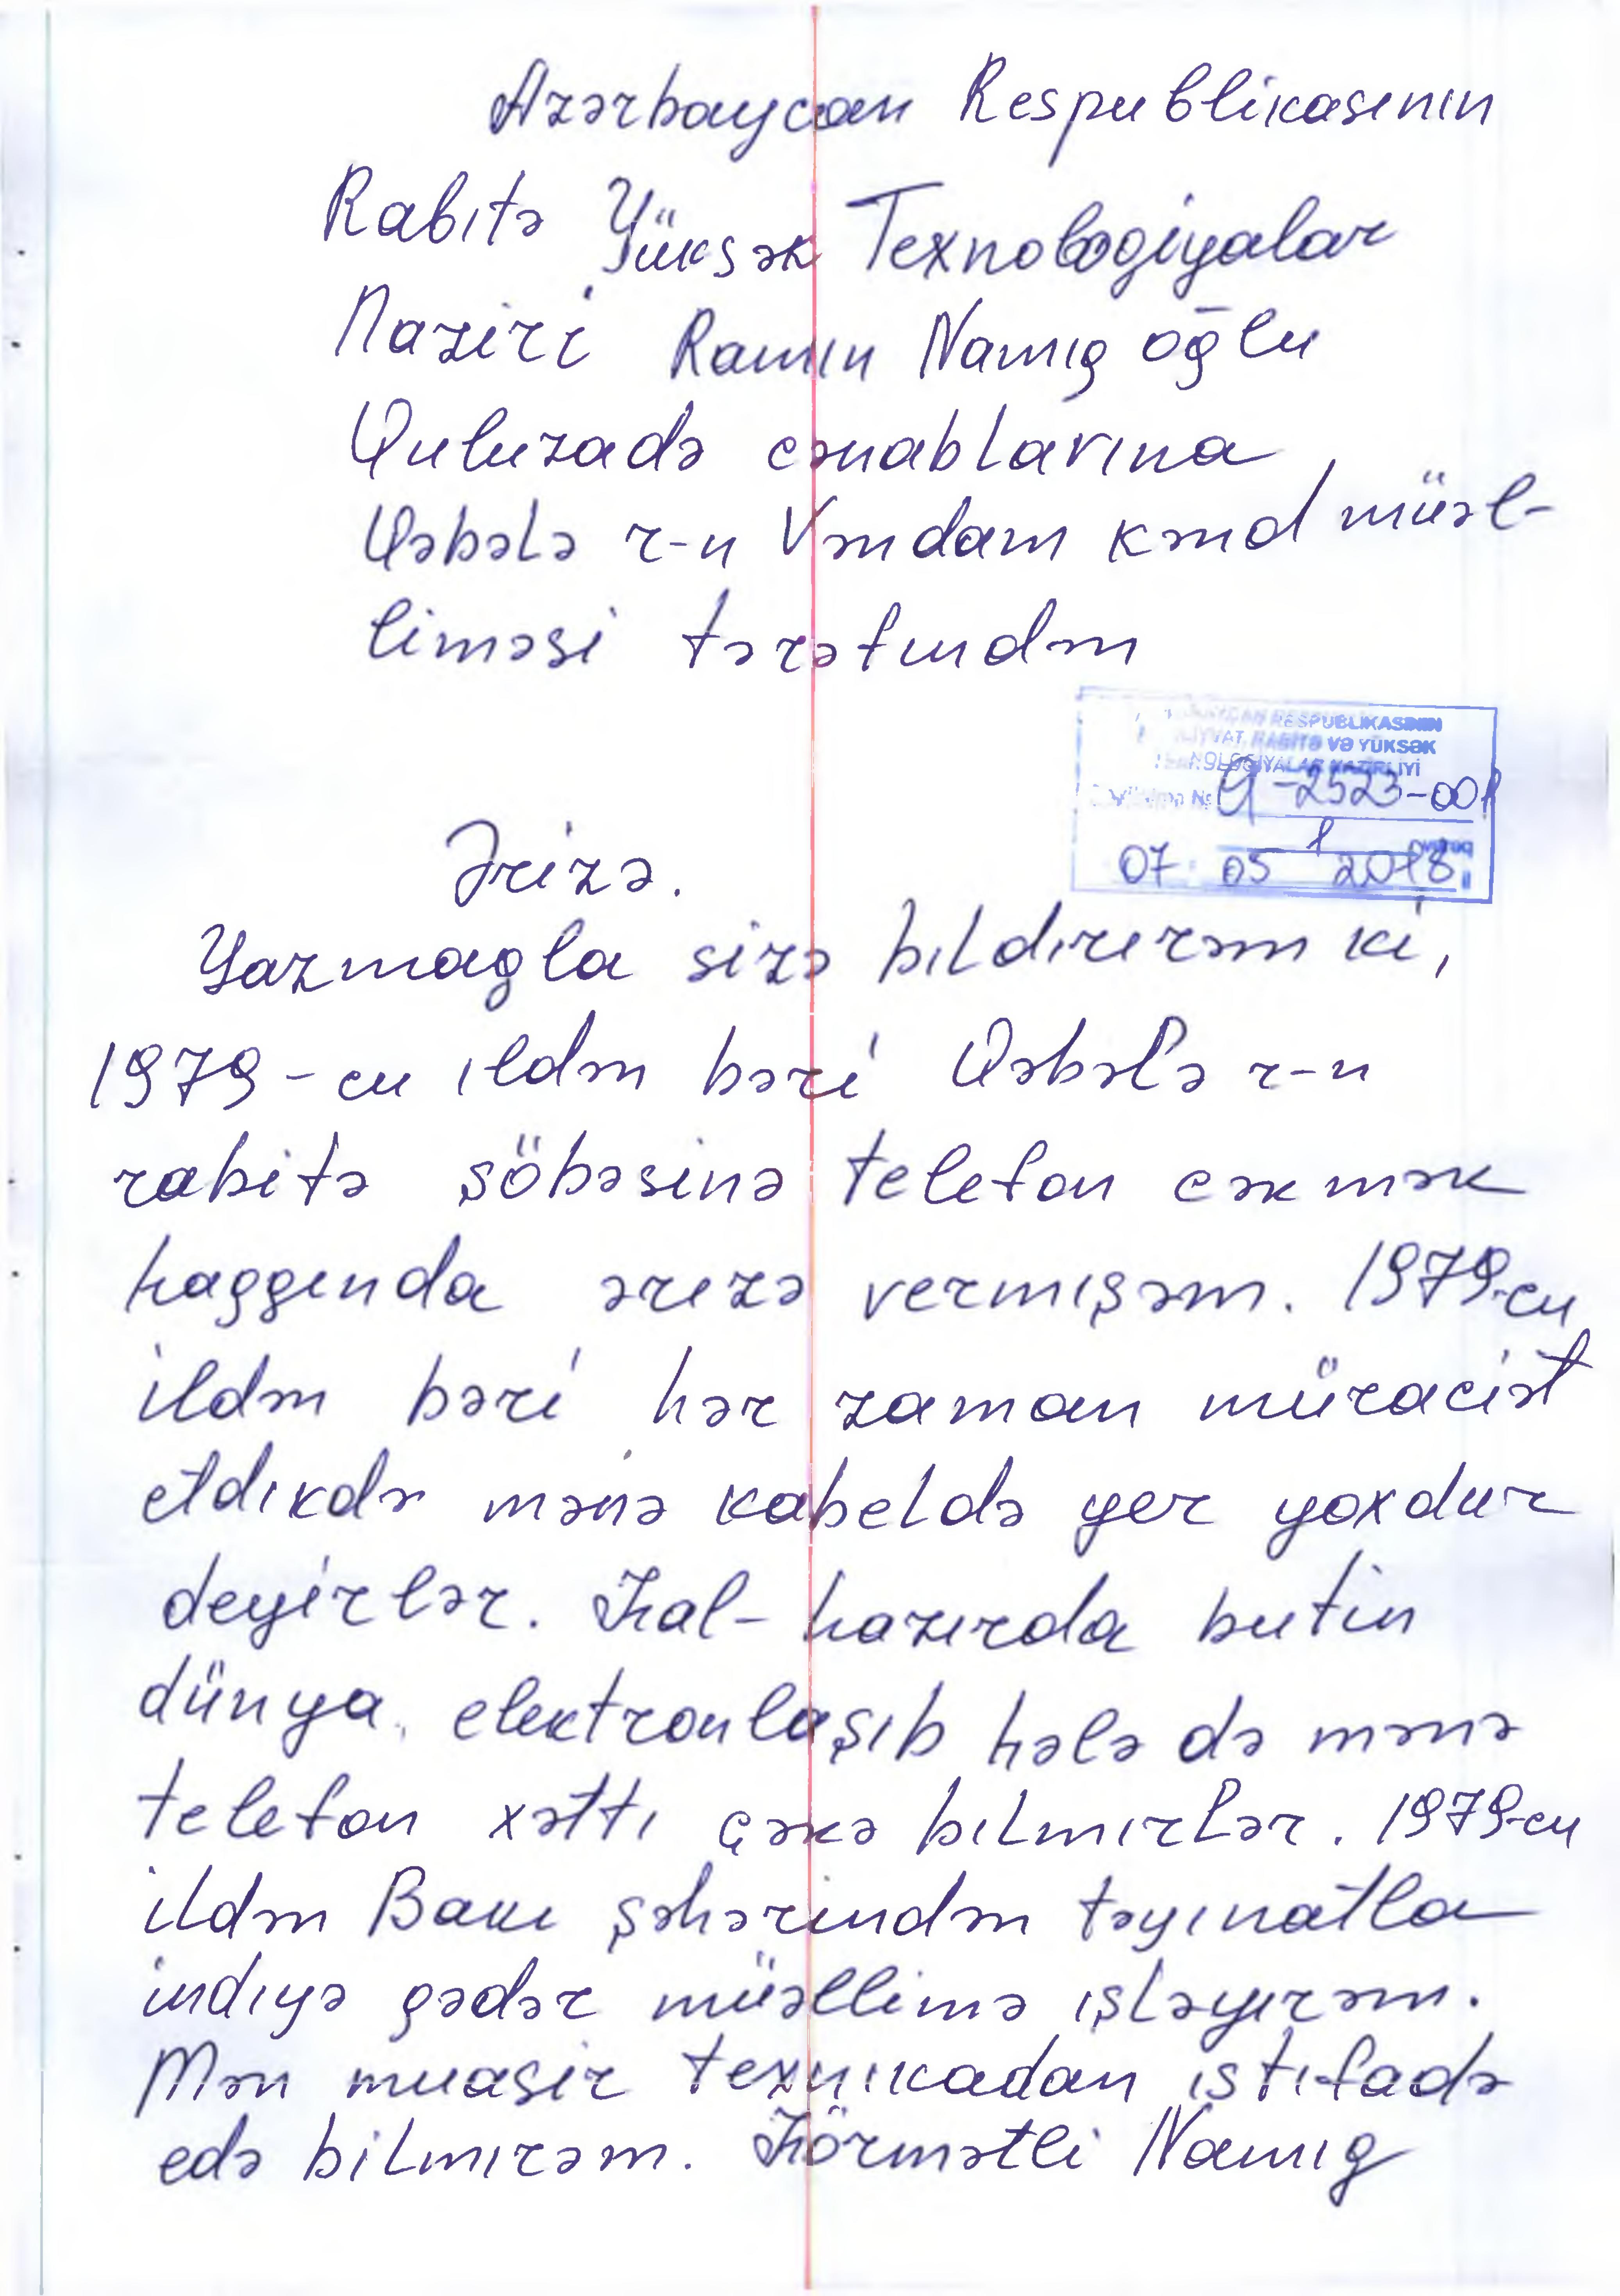 Azərbaycan Respublikasının
Rabıtə Yüksək Texnologiyalar
Naziri Ramın Namıg oğlu
Quluzadə cənablarına
Qəbələ r-n Vəndam kənd müəl-
liməsi tərəfindən
RESPUBLİKASININ
RABİTƏ VƏ YÜKSƏK
NOLOGİYALAR NAZİRLİYİ
№ 9-2523-001
1 vərəq
07 05 2018
Ərizə.
Yazmagla sizə bıldırırəm ki,
1979-cu ıldən bəri Qəbələ r-n
rabitə şöbəsinə telefon cəkmək
haggında ərizə vermışəm. 1979-cu
ildən bəri hər zaman müraciət
etdıkdə mənə kabeldə yer yoxdur
deyirlər. Hal-hazırda butin
dünya elektronlaşıb hələ də mənə
telefon xəttı çəkə bılmırlər. 1979-cu
ildən Bakı şəhərindən təyınatla
indıyə gədər müəllimə ışləyırəm.
Mən muasir texnıkadan ıstıfadə
edə bilmırəm. Hörmətli Namıg